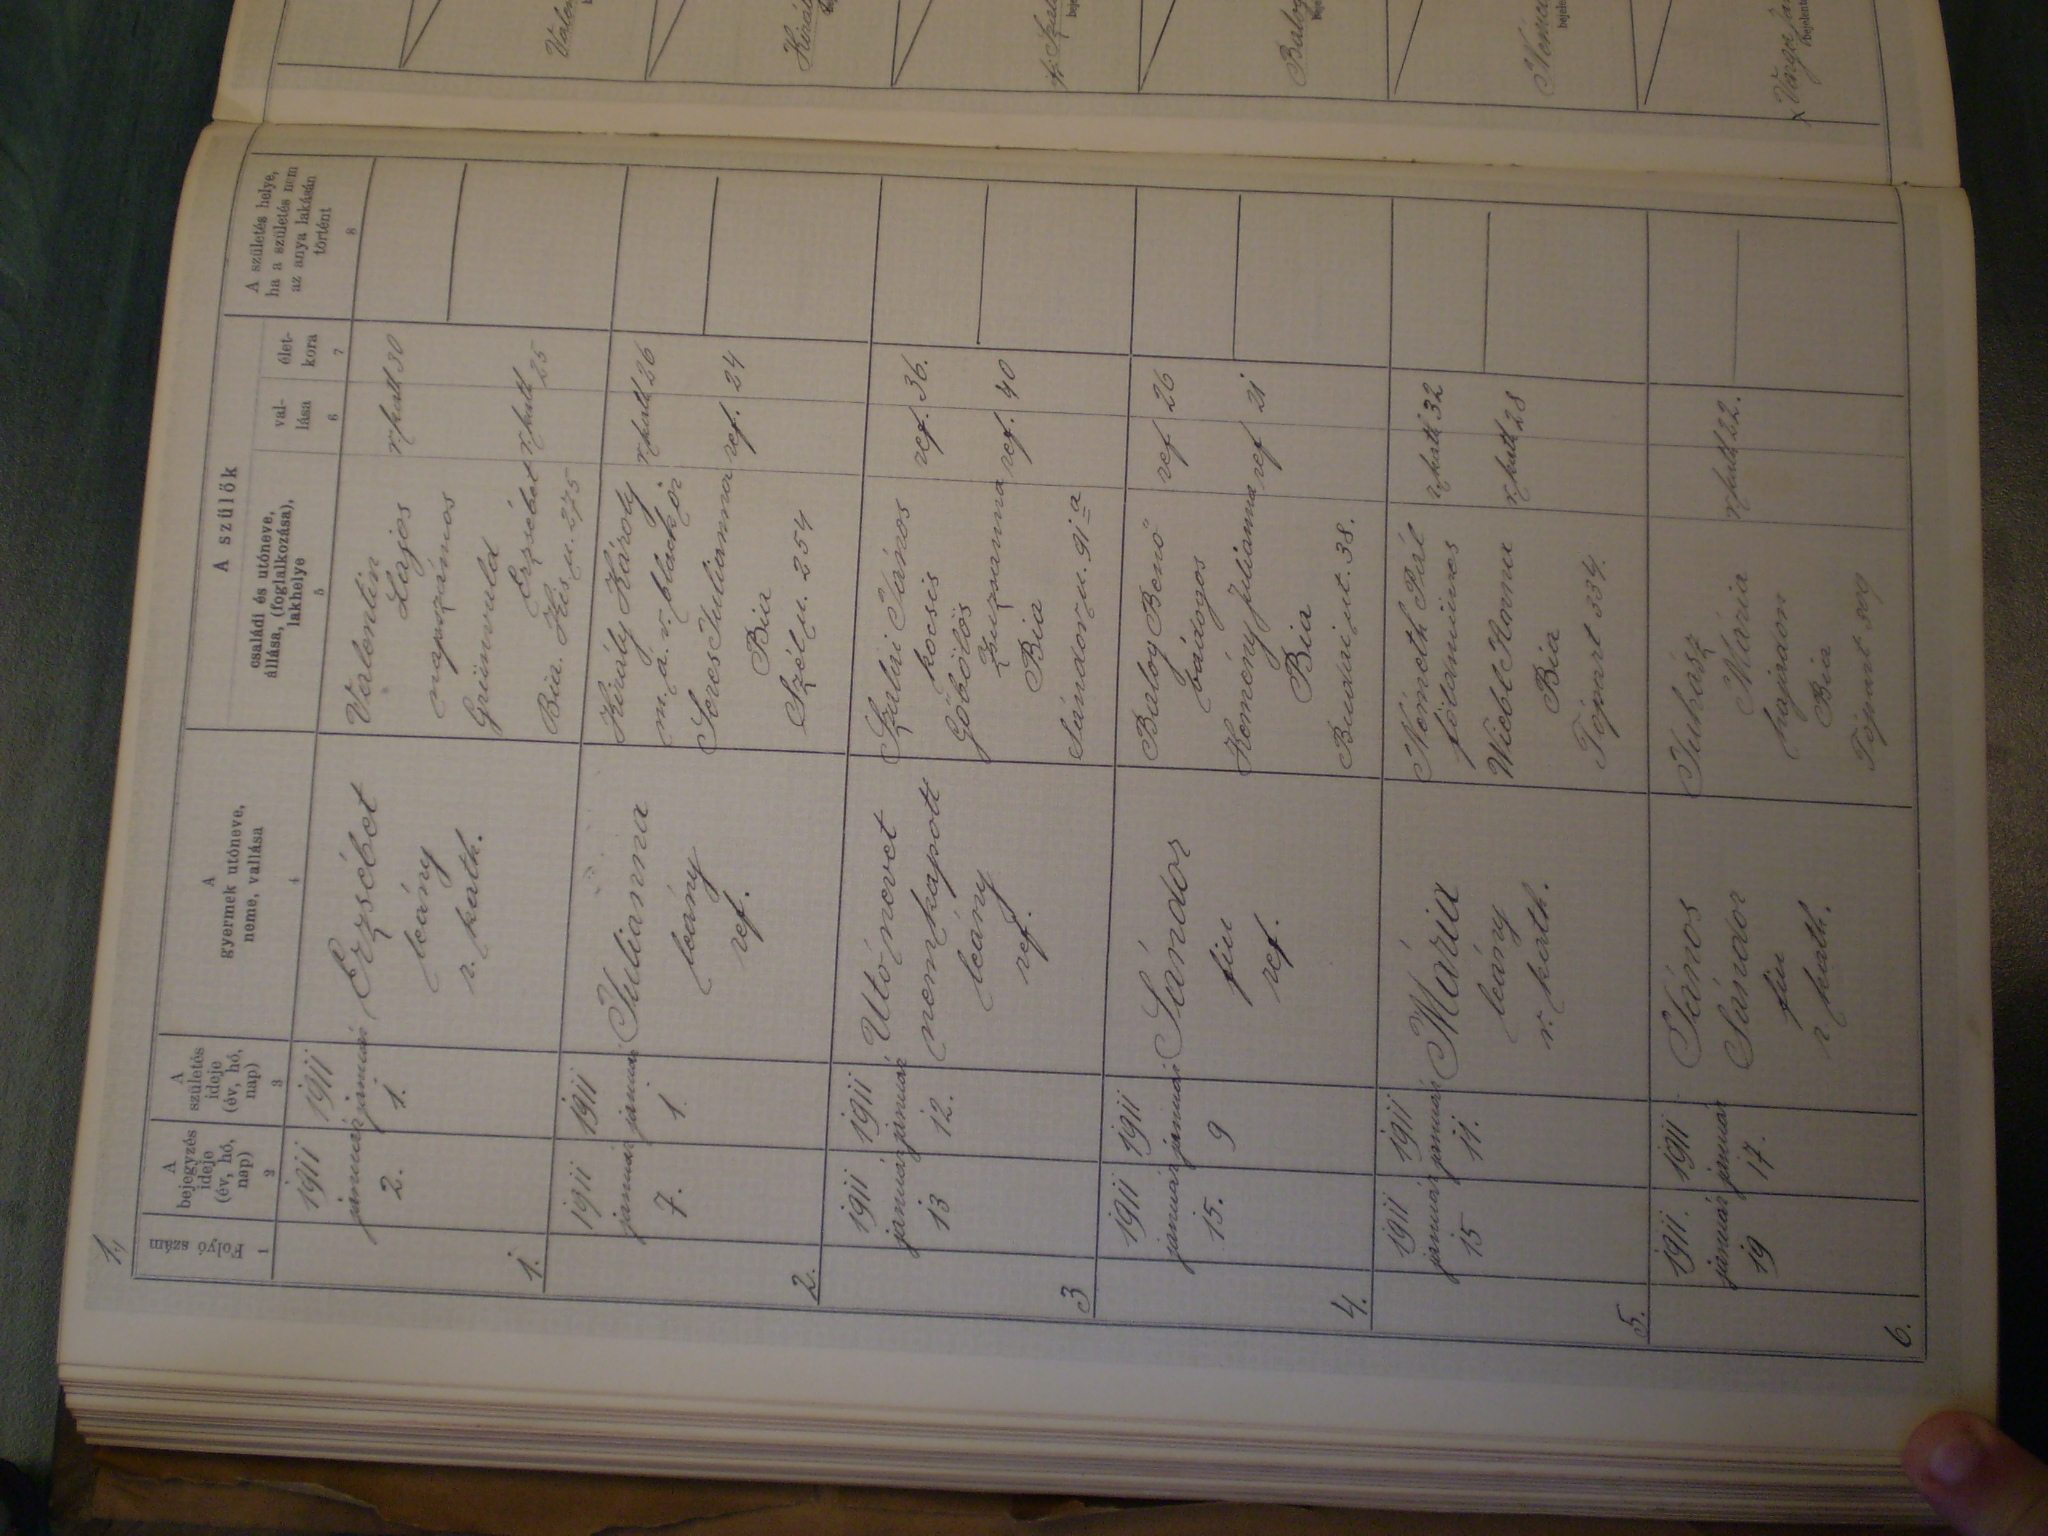 1.
Folyó szám
1
A
bejegyzés
ideje
(év, hó,
nap)
2
A
születés
ideje
(év, hó,
nap)
3
A
gyermek utóneve,
neme, vallása
4
A szülők
családi és utóneve,
állása, (foglalkozása),
lakhelye
5
val-
lása
6
élet-
kora
7
A születés helye,
ha a születés nem
az anya lakásán
történt
8
1.
1911
január
2.
1911
január
1.
Erzsébet
leány
r. kath.
Valentin
Lajos
napszámos
Grünwald
Erzsébet
Bia. Kis u. 275
r. kath 30
r. kath 25
2.
1911
január
7.
1911
január
1.
Julianna
leány
ref.
Király Károly
m. á. v.
Seres Julianna
Bia
Szél u. 254
r. kath 26
ref. 24
3
1911
január
13
1911
január
12.
Utónevet
nem kapott
leány
ref.
Szalai János
kocsis
Göbölös
Zsuzsanna
Bia
Sándor u. 91 a
ref. 36.
ref. 40
4.
1911
január
15.
1911
január
9
Sándor
fiu
ref.
Balog Benő
bádogos
Kemény Julianna
Bia
Budai ut. 38.
ref 26
ref 21
5.
1911
január
15
1911
január
11.
Mária
leány
r. kath.
Németh Pál
földmüves
Anna
Bia
Tópart 334.
r. kath 32
r. kath 28
6.
1911.
január
19
1911.
január
17.
János
Sándor
fiu
r. kath.
Juhász
Mária
hajadon
Bia
Tópart 309
r. kath 22.
Valen
Király
Szal
bejele
Balog
Német
bejelent
x Varga
bejelent